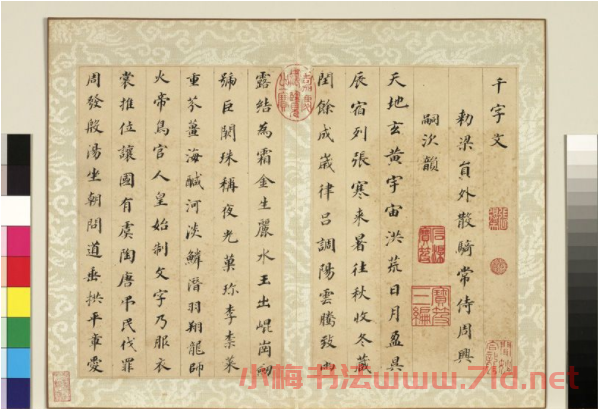 千字文
勑梁員外散騎常侍周興
嗣次韻
天地玄黃宇宙洪荒日月盈昃
辰宿列張寒来暑往秋收冬藏
閏餘成歲律吕調陽雲騰致雨
露結為霜金生麗水玉出崐崗劒
號巨闕珠稱夜光菓珍李柰菜
重芥薑海醎河淡鱗潛羽翔龍師
火帝鳥官人皇始制文字乃服衣
裳推位讓國有虞陶唐弔民伐罪
周發殷湯坐朝問道垂拱平章愛
寶笈三編
小梅书法www.7ld.net